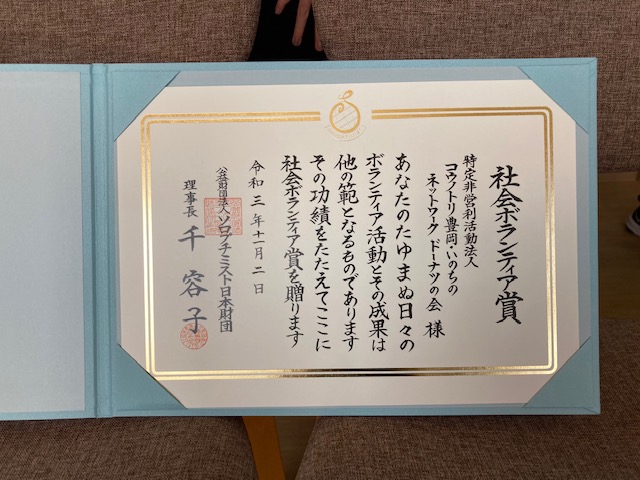 社会ボランティア賞
特定非営利活動法人
コウノトリ豊岡・いのちの
ネットワーク ドーナツの会 様
あなたのたゆまぬ日々の
ボランティア活動とその成果は
他の範となるものであります
その功績をたたえてここに
社会ボランティア賞を贈ります
令和三年十一月二日
公益財団法人ソロプチミスト日本財団
理事長 千容子